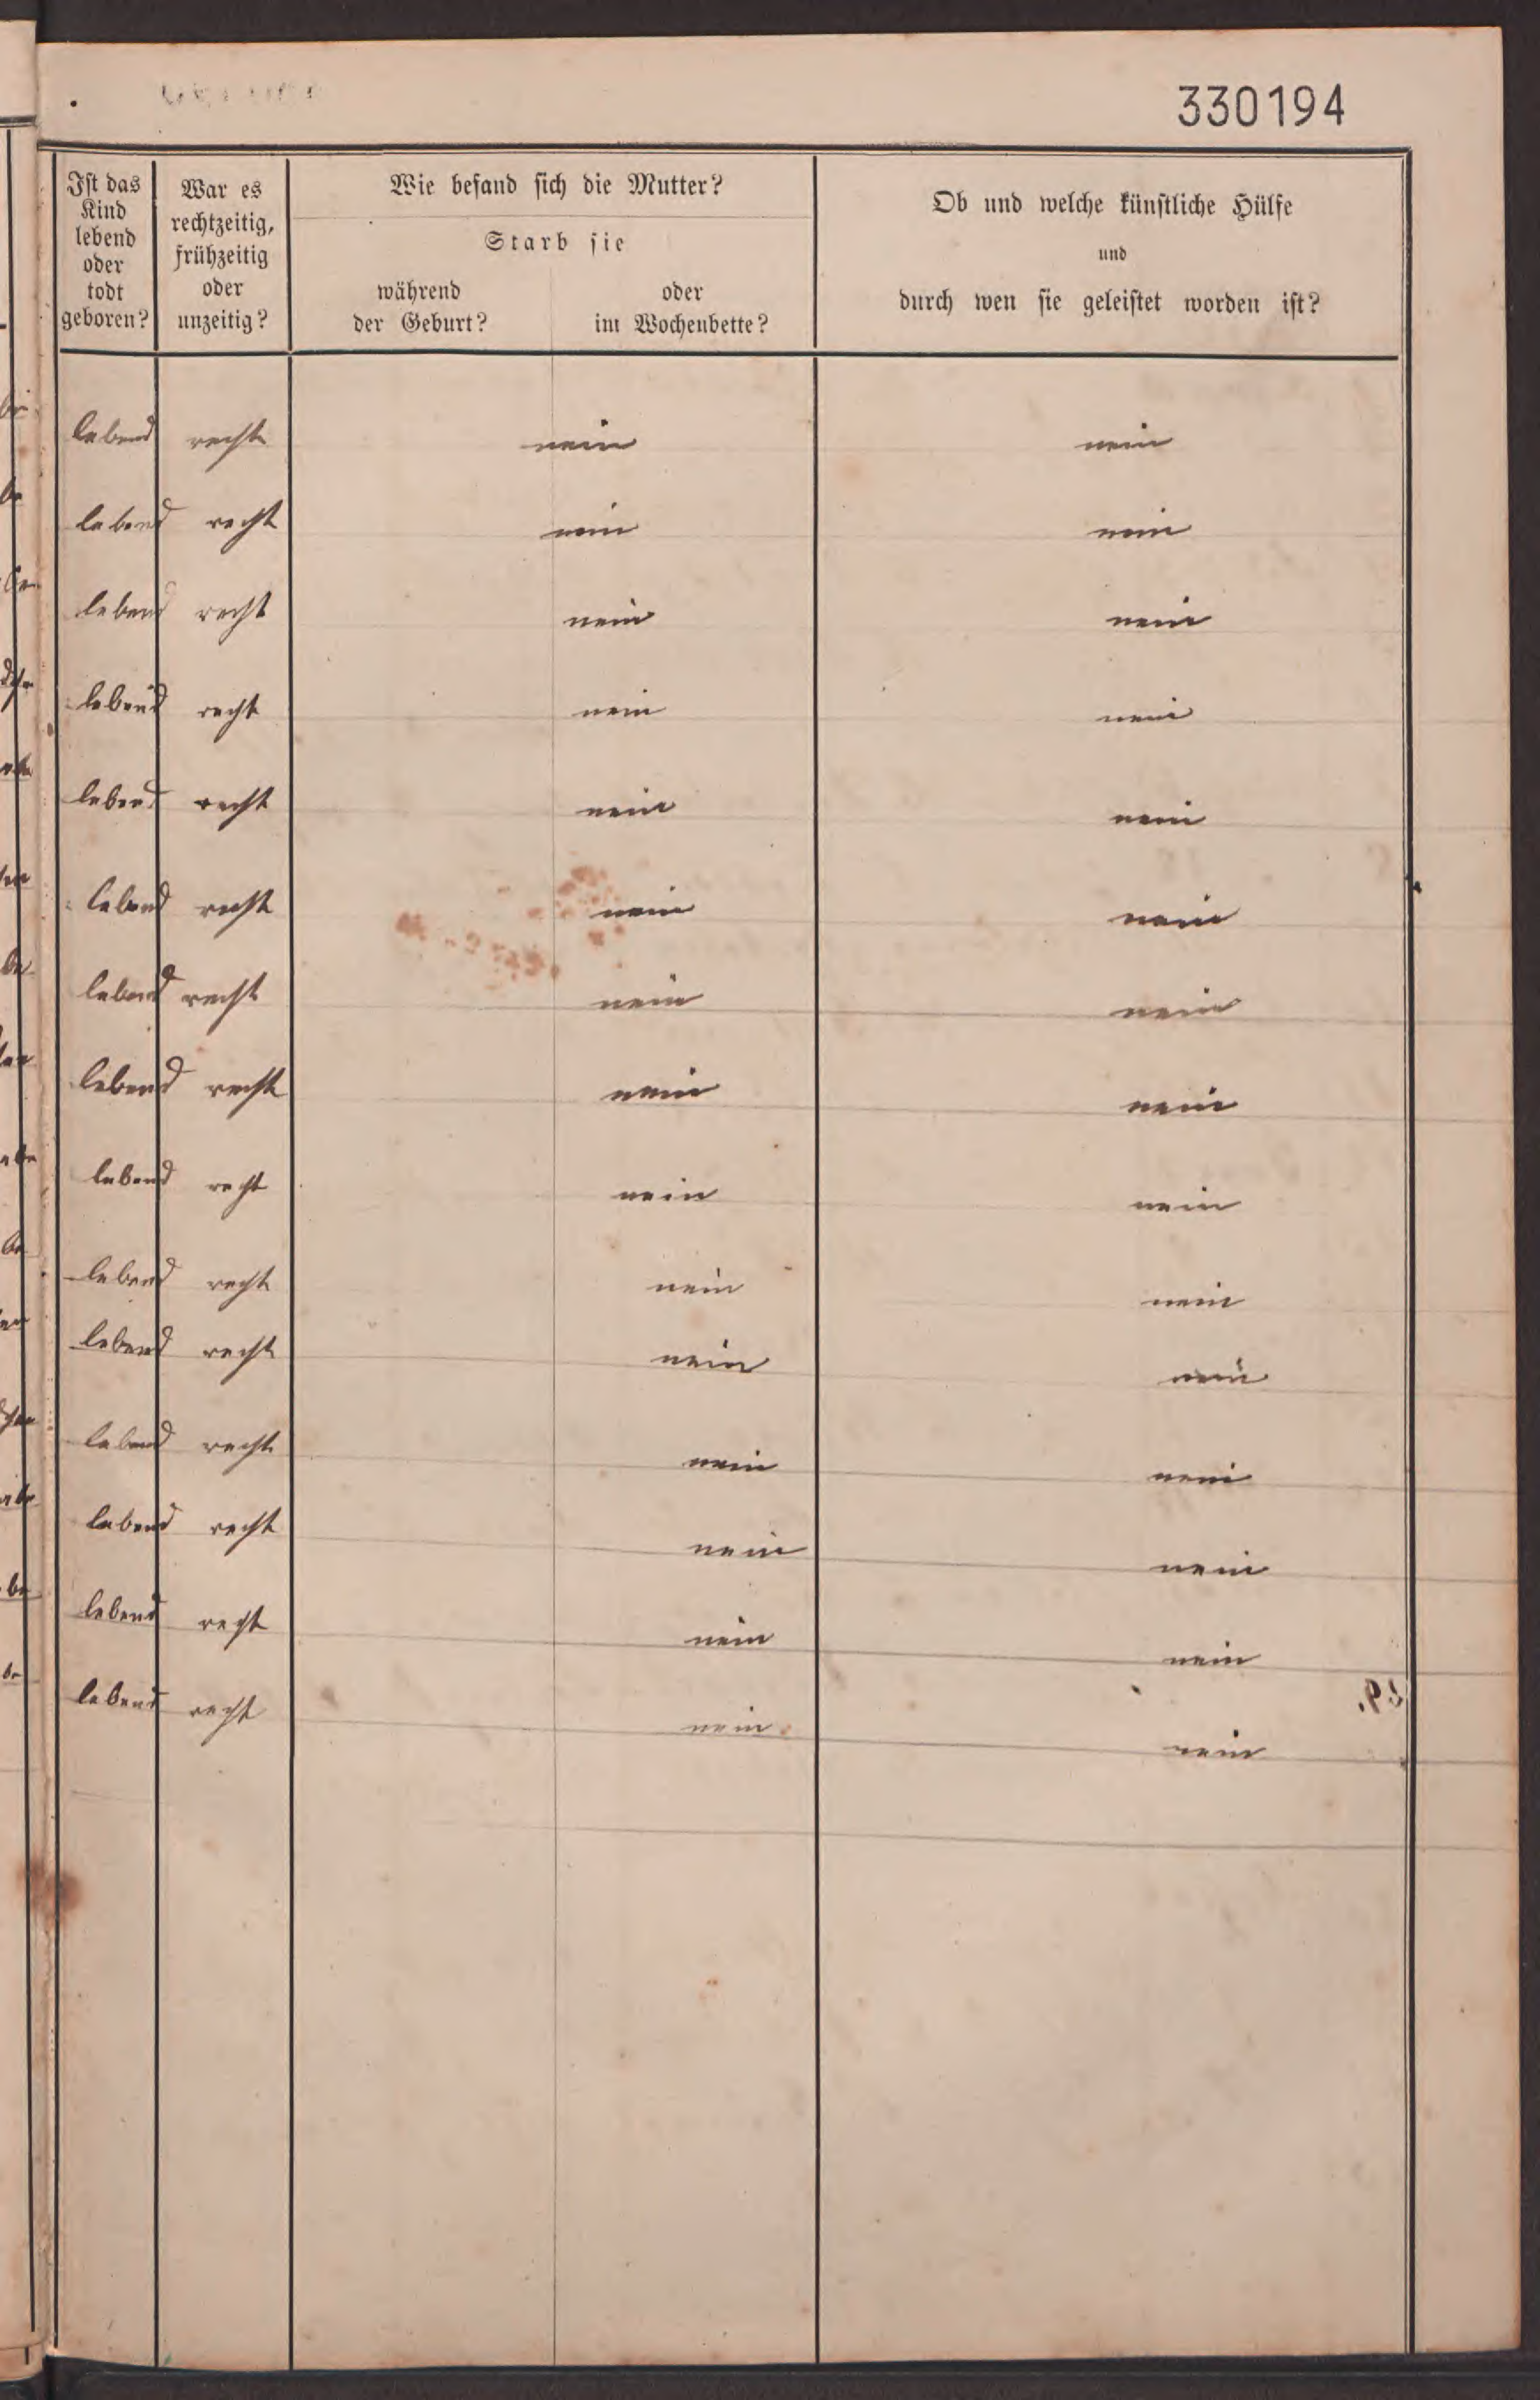 330194
Ist das Kind lebend oder todt geboren?
War es rechtzeitig, frühzeitig oder unzeitig?
Wie befand sich die Mutter?
Starb sie
während der Geburt?
oder im Wochenbette?
Ob und welche künstliche Hülfe
und
durch wen sie geleistet worden ist?
lebend recht nein nein
lebend recht nein nein
lebend recht nein nein
lebend recht nein nein
lebend recht nein nein
lebend recht nein nein
lebend recht nein nein
lebend recht nein nein
lebend recht nein nein
lebend recht nein nein
lebend recht nein nein
lebend recht nein nein
lebend recht nein nein
lebend recht nein nein
lebend recht nein nein